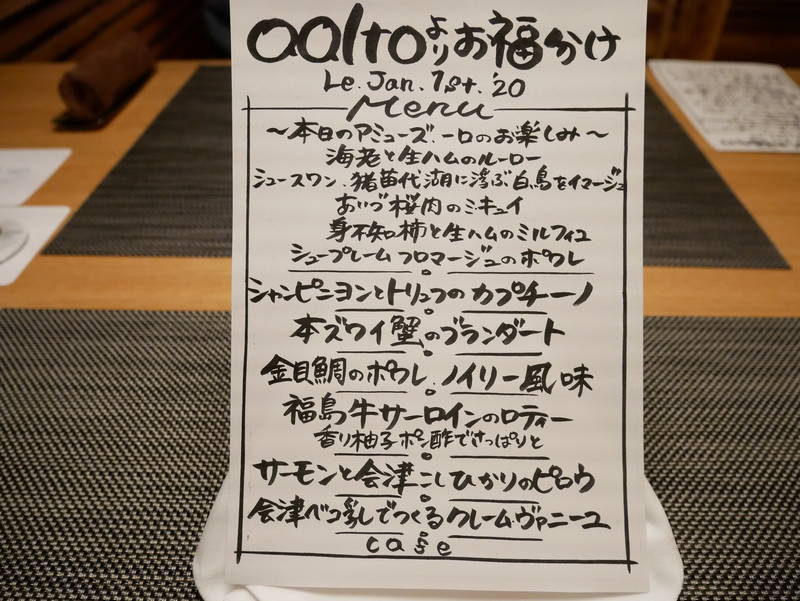 aalto よりお福分け
Le. Jan. 1st. '20
Menu
～本日のアミューズ.一口のお楽しみ～
海老と生ハムのルーロー
シュースワン.猪苗代湖に浮ぶ白鳥をイマージュ
あいづ桜肉のミキュイ
身不知柿と生ハムのミルフィユ
シュープレームフロマージュのポワレ
シャンピニヨンとトリュフのカプチーノ
本ズワイ蟹のブランダート
金目鯛のポワレ.ノイリー風味
福島牛サーロインのロティー
香り柚子ポン酢でさっぱりと
サーモンと会津こしひかりのピロウ
会津べこの乳でつくるクレーム.ヴァニーユ
cafe